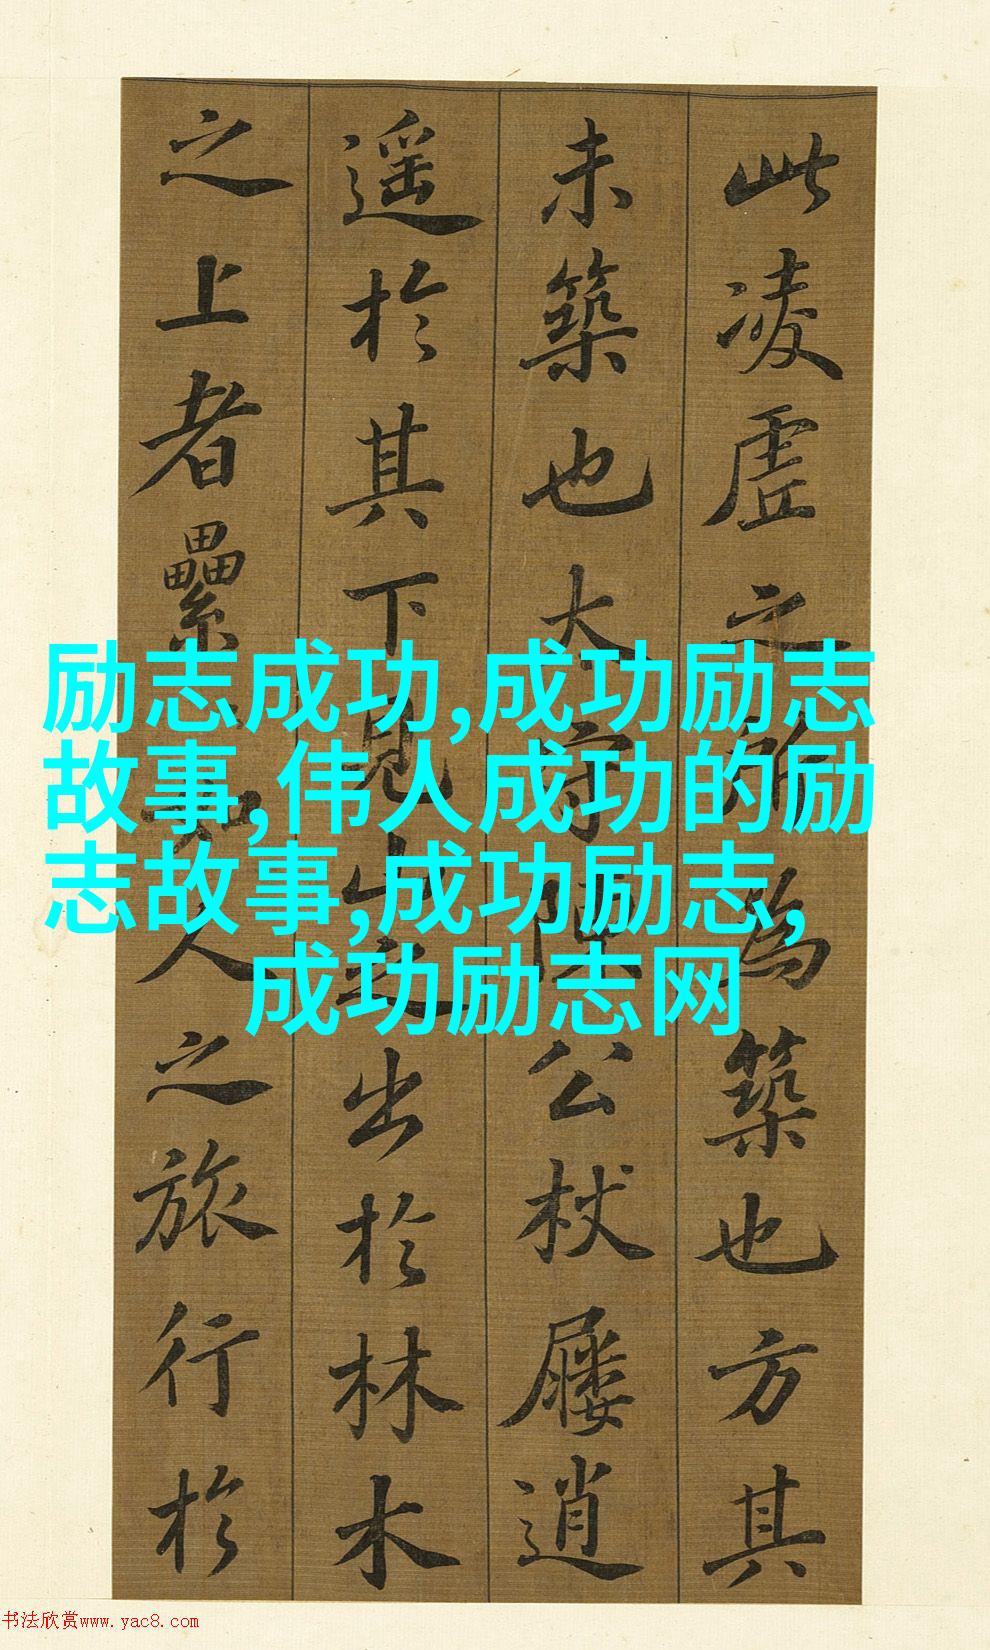 励志成功,成功励志
故事,伟人成功的励
志故事,成功励志,
成功励志网
此凌虗之所為築也方其
未築也太守陳公杖屨逍
遥於其下見山之出於林木
之上者纍々如人之旅行於
书法欣赏www.yac8.com